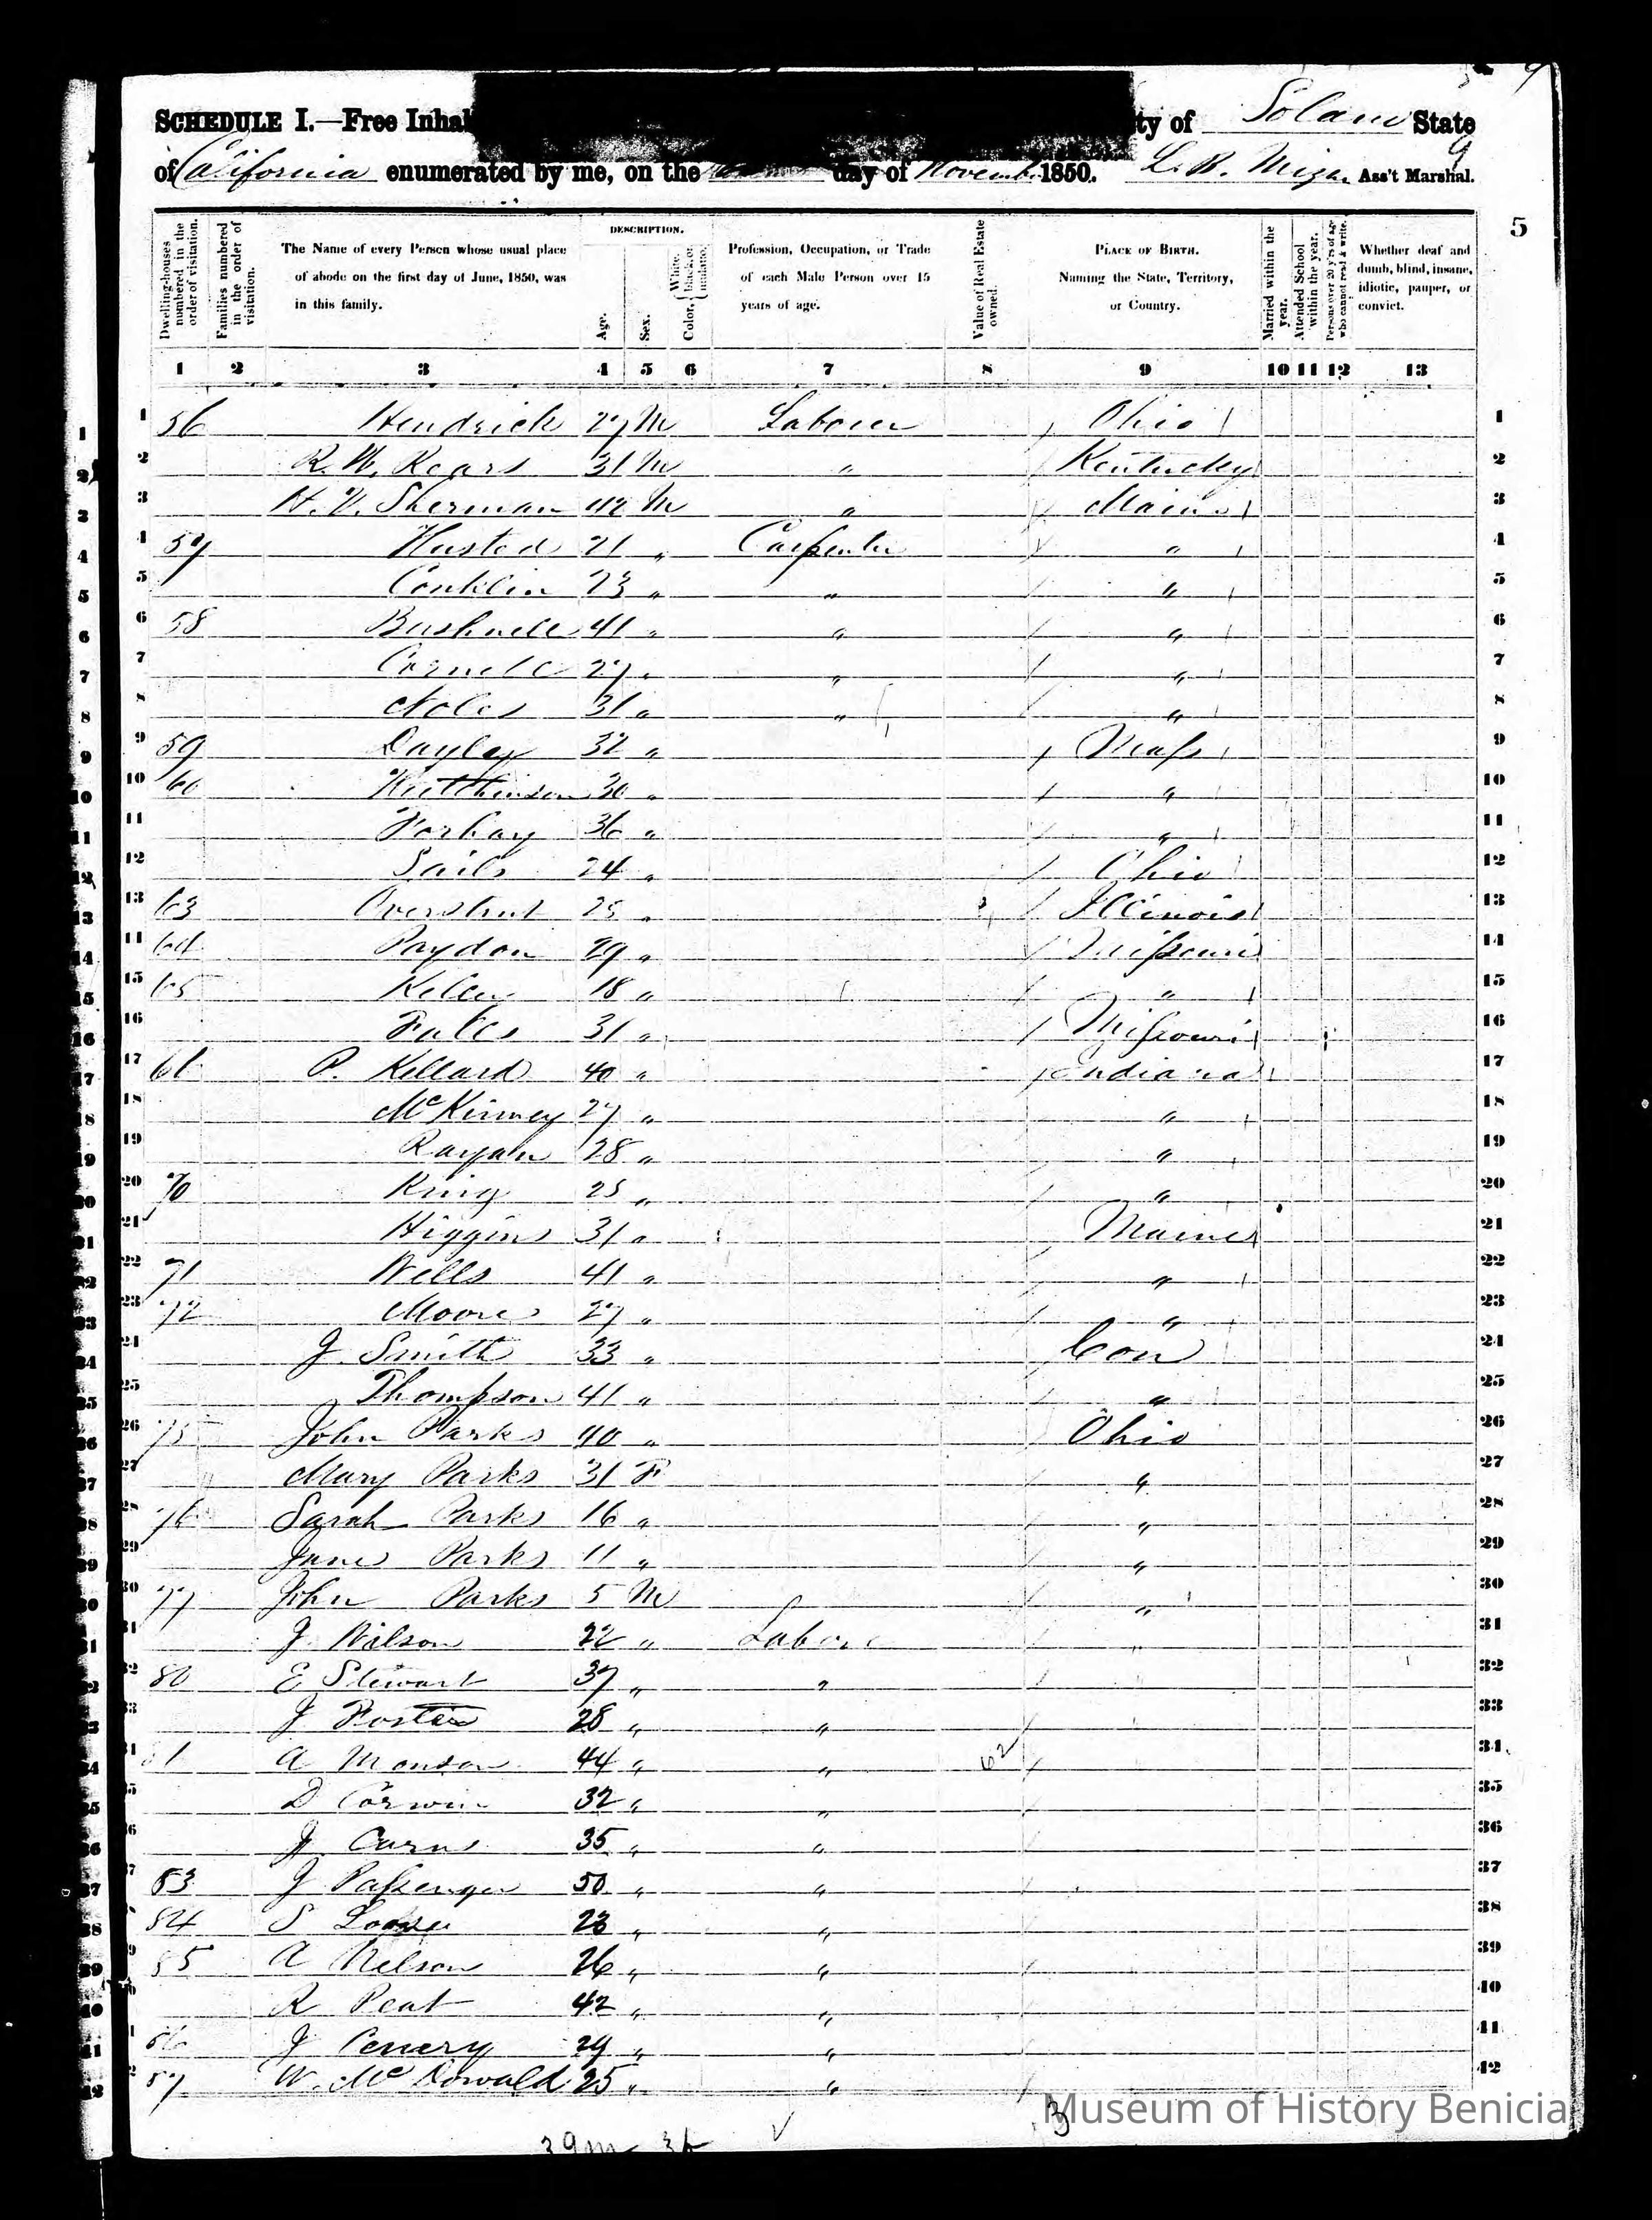 9
SCHEDULE I.—Free Inhal ty of Solano State
9
of California enumerated by me, on the day of November 1850. L. B. Mizner Ass't Marshal.
5
Dwelling-houses numbered in the order of visitation.
Families numbered in the order of visitation.
The Name of every Person whose usual place of abode on the first day of June, 1850, was in this family.
DESCRIPTION.
Age.
Sex.
Color, { White, black, or mulatto.
Profession, Occupation, or Trade of each Male Person over 15 years of age.
Value of Real Estate owned.
PLACE OF BIRTH. Naming the State, Territory, or Country.
Married within the year.
Attended School within the year.
Persons over 20 y'rs of age who cannot read & write.
Whether deaf and dumb, blind, insane, idiotic, pauper, or convict.
1 2 3 4 5 6 7 8 9 10 11 12 13
1 56 Hendrick 27 M Laborer Ohio 1
2 R. W. Kears 31 M " Kentucky 2
3 H. V. Sherman 42 M " Maine 3
4 57 Husted 21 " Carpenter " 4
5 Conklin 23 " " " 5
6 58 Bushnell 41 " " " 6
7 Cornell 27 " " " 7
8 Noles 31 " " " 8
9 59 Dayley 32 " Mass 9
10 60 Hutchinson 30 " " 10
11 Forbay 36 " " 11
12 Sails 24 " Ohio 12
13 63 Overstrut 25 " Illinois 13
14 64 Paydon 29 " Missouri 14
15 65 Keller 18 " " 15
16 Fales 31 " Missouri 16
17 66 P. Kellard 40 " Indiana 17
18 McKinney 27 " " 18
19 Rayan 28 " " 19
20 70 King 25 " " 20
21 Higgins 31 " Maine 21
22 71 Wells 41 " " 22
23 72 Moore 27 " " 23
24 J. Smith 33 " Con 24
25 Thompson 41 " " 25
26 75 John Parks 40 " Ohio 26
27 Mary Parks 31 F " 27
28 76 Sarah Parks 16 " " 28
29 Jane Parks 11 " " 29
30 77 John Parks 5 M " 30
31 J. Wilson 22 " Labore " 31
32 80 E Stewart 37 " " 32
33 J Foster 28 " " 33
34 81 A Monson 44 " " 62 34
35 D Corwin 32 " " 35
36 J. Carns 35 " " 36
37 83 J Passenger 50 " " 37
38 84 S 23 " " 38
39 85 A Nelson 26 " " 39
40 R Peat 42 " " 40
41 86 J Cenery 29 " " 41
42 87 W. McDowald 25 " " 42
3
39m 3f
Museum of History Benicia